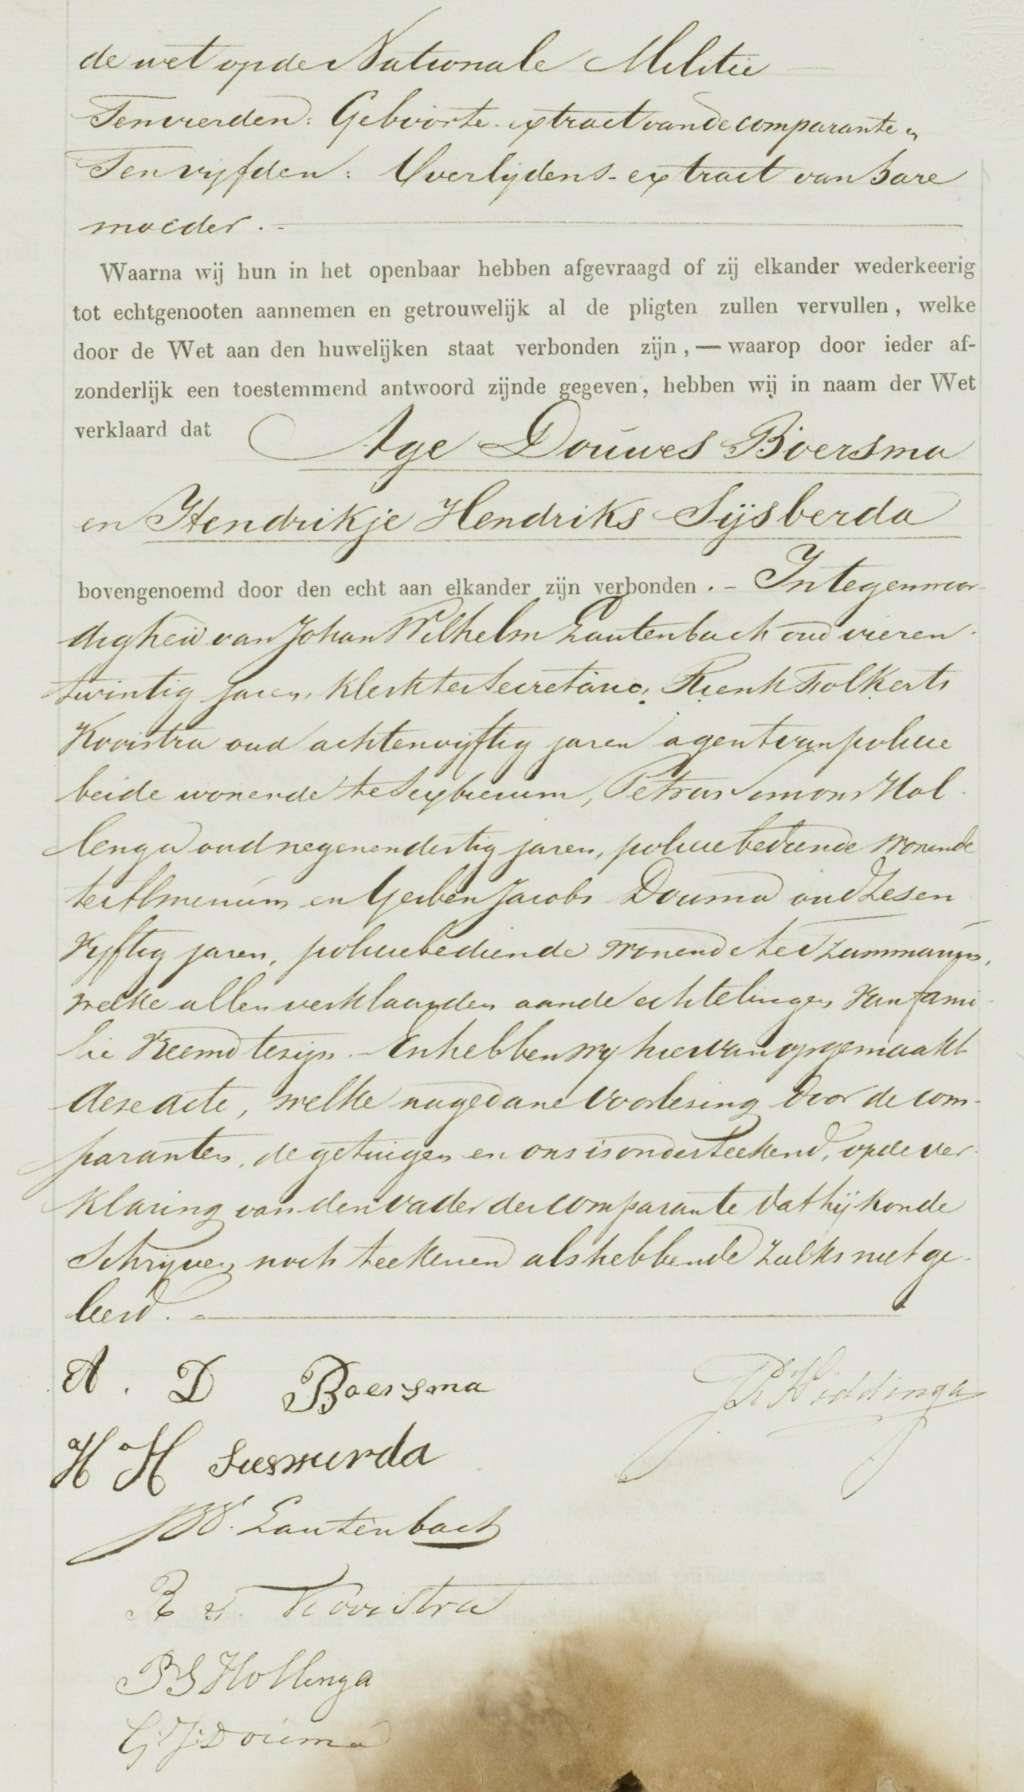 de wet op de Nationale Militie
Tenvierden: Geboorte-extract van de comparante en
Tenvijfden: Overlijdens-extract van hare
moeder. -
Waarna wij hun in het openbaar hebben afgevraagd of zij elkander wederkeerig
tot echtgenooten aannemen en getrouwelijk al de pligten zullen vervullen, welke
door de Wet aan den huwelijken staat verbonden zijn, — waarop door ieder af-
zonderlijk een toestemmend antwoord zijnde gegeven, hebben wij in naam der Wet
verklaard dat Age Douwes Boersma
en Hendrikje Hendriks Sijsberda
bovengenoemd door den echt aan elkander zijn verbonden. - In tegenwoor-
digheid van Johan Wilhelm Lautenbach oud vieren-
twintig jaren, klerk ter Secretarie, Rienk Folkerts
Kooistra oud achtenvijftig jaren agent van policie
beide wonende te Sexbierum, Petrus Simons Hol-
lenga oud negenendertig jaren, policiebediende wonende
te Almenum en Gerben Jacobs Douma oud zesen
vijftig jaren, policiebediende wonende te Tzummarum,
welke allen verklaarden aan de echtelingen van fami-
lie vreemd te zijn. - En hebben wij hiervan opgemaakt
deze acte, welke na gedane voorlezing door de com-
paranten, de getuigen en ons is onderteekend, op de ver-
klaring van den vader der comparante dat hij konde
schrijven noch teekenen als hebbende zulks niet ge-
leerd. -
A. D Boersma
P Hiddinga
H H Sieswerda
JW. Lautenbach
R F. Kooistra
PS Hollenga
G:J:Douma